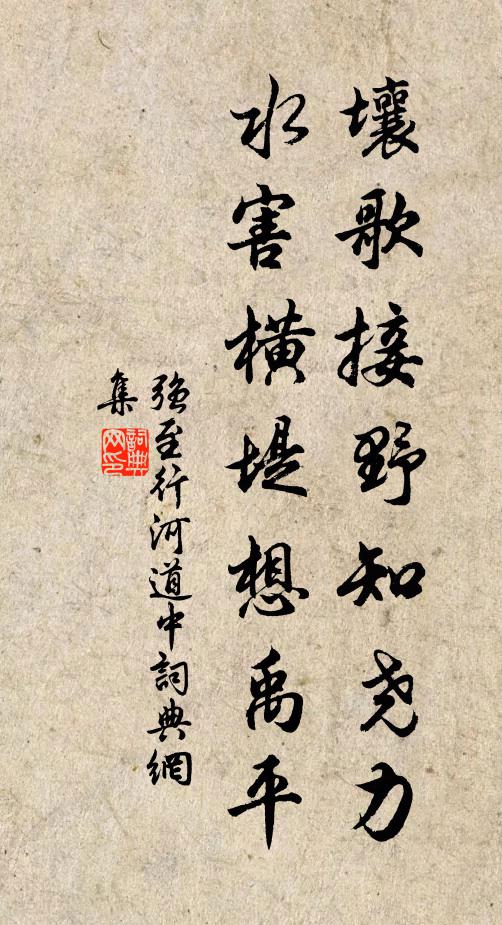 壤歌接野知尧力
水害横堤想禹平
强至行河道中詞典網
集
詞典网印